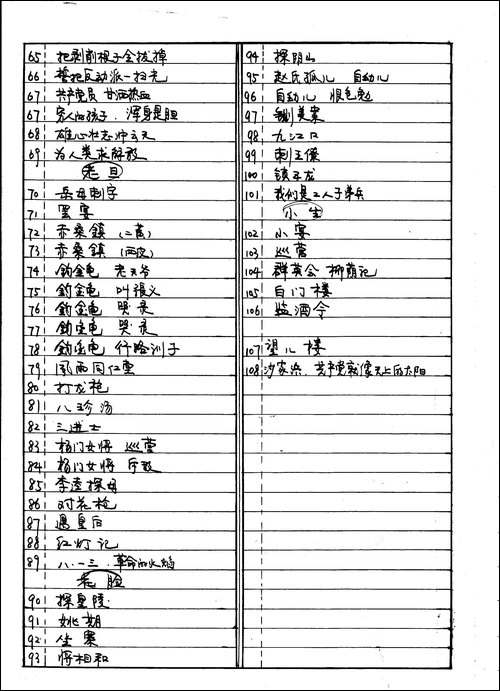 65 把剥削根子全拔掉
66 誓把反动派一扫光
67 共产党员 甘洒热血
67 穷人的孩子. 浑身是胆
68 雄心壮志冲云天
69 为人类求解放
老旦
70 岳母刺字
71 罢宴
72 赤桑鎮 (二黄)
73 赤桑鎮 (西皮)
74 钓金龟 老天爷
75 钓金龟 叫張义
76 钓金龟 哭灵
77 钓金龟 哭灵
78 钓金龟 行路训子
79 風雨同仁堂
80 打龙袍
81 八珍汤
82 三进士
83 杨门女将 巡营
84 杨门女将 斥敌
85 李逵探母
86 对花枪
87 遇皇后
88 红灯记
89 八.一三.革命的火焰
花脸
90 探皇陵
91 姚期
92 坐寨
93 将相和
94 探阴山
95 赵氏孤儿 自幼儿
96 自幼儿 恨包勉
97 铡美案
98 九江口
99 刺王僚
100 鎮 龙
101 我们是工人子弟兵
小生
102 小宴
103 巡营
104 群英会 柳荫记
105 白门楼
106 监酒令
107 望儿楼
108 沙家浜.共产党就像天上的太阳